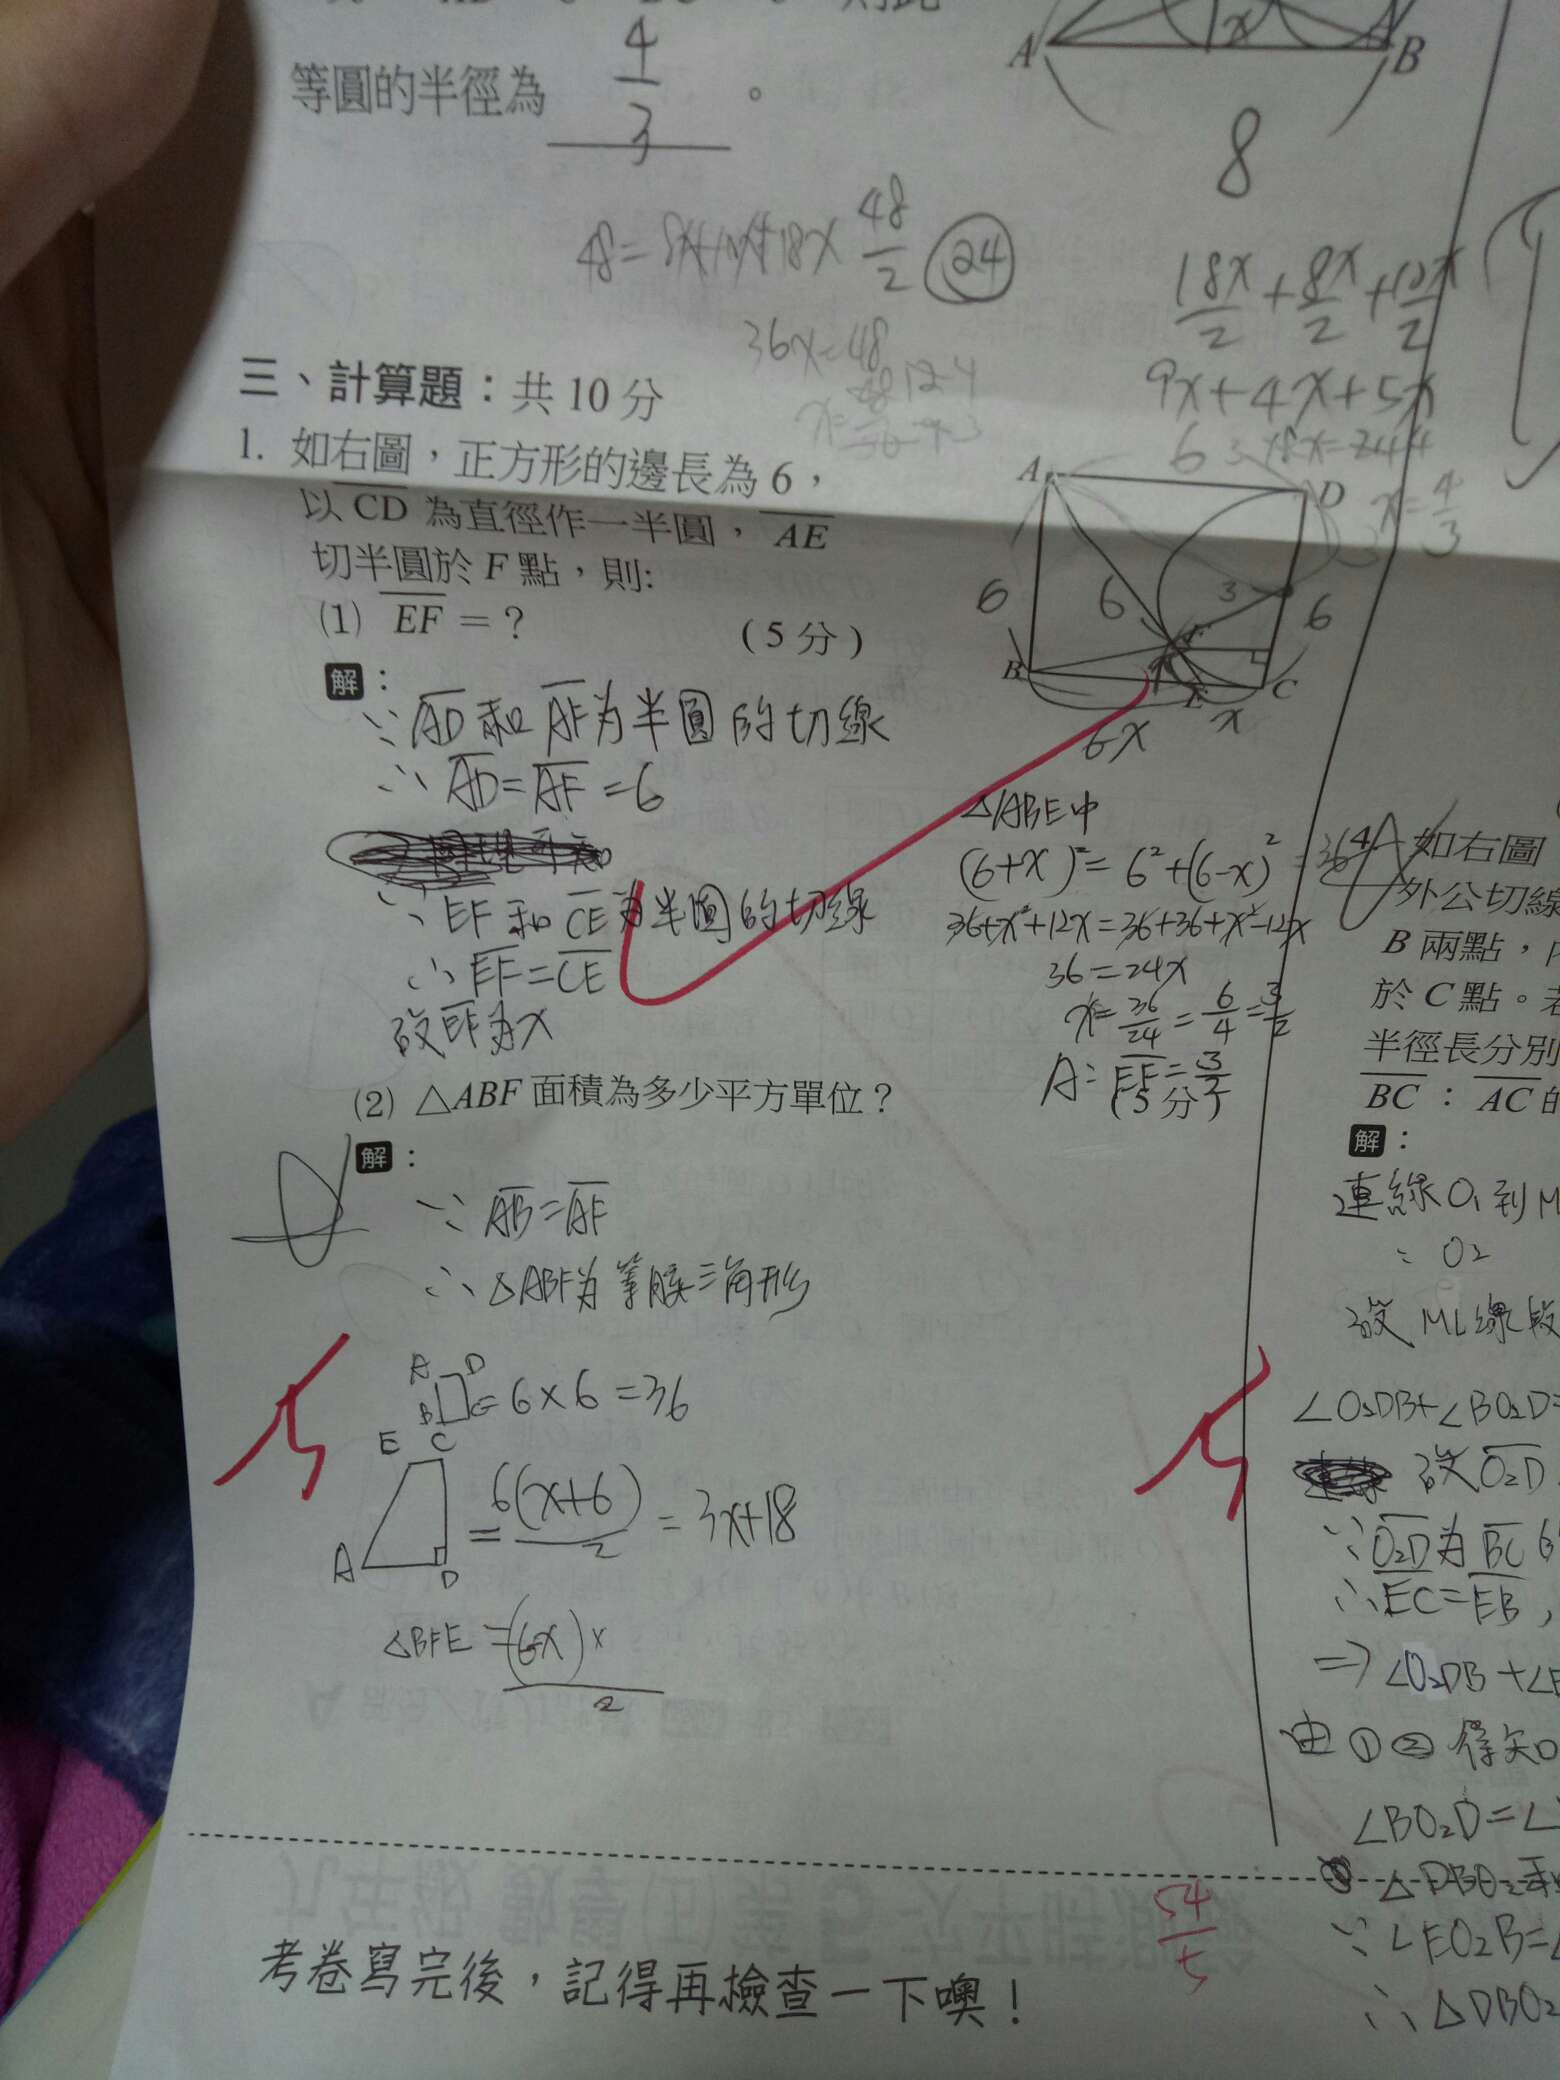 等圓的半徑為 4/3 。
A
x
B
8
48=
48/2
24
18x/2+8x/2+10x/2
36x=48
9x+4x+5x
三、計算題：共 10 分
1. 如右圖，正方形的邊長為 6，
以 CD 為直徑作一半圓， AE
切半圓於 F 點，則:
(1) EF = ?
(5 分)
A
6
D
x=4/3
6
6
3
6
F
B
E
C
x
6x
解：
∵ AD 和 AF為半圓的切線
∴ AD=AF=6
∵ EF 和 CE為半圓的切線
∴ EF=CE
設EF為x
△ABE中
(6+x)²=6²+(6-x)²
36+x²+12x=36+36+x²-12x
36=24x
x=36/24=6/4=3/2
A: EF=3/2
(2) △ABF 面積為多少平方單位？
(5 分)
解：
∵ AB=AF
∴ △ABF為等腰三角形
A D
B C =6×6=36
E C
A D =6(x+6)/2=3x+18
△BFE=(6x)×/2
4
如右圖
外公切線
B 兩點，
於 C 點。
半徑長分別
BC : AC 的
解：
連線O₁到M
: O2
設 ML線段
∠O₂DB+∠BO₂D=
設O₂D
∵O₂D為BC
∴EC=EB,
⇒∠O₂DB+∠
由①②得知
∠BO₂D=∠
∵∠EO₂B=
∴△DBO₂
54/5
考卷寫完後，記得再檢查一下噢！